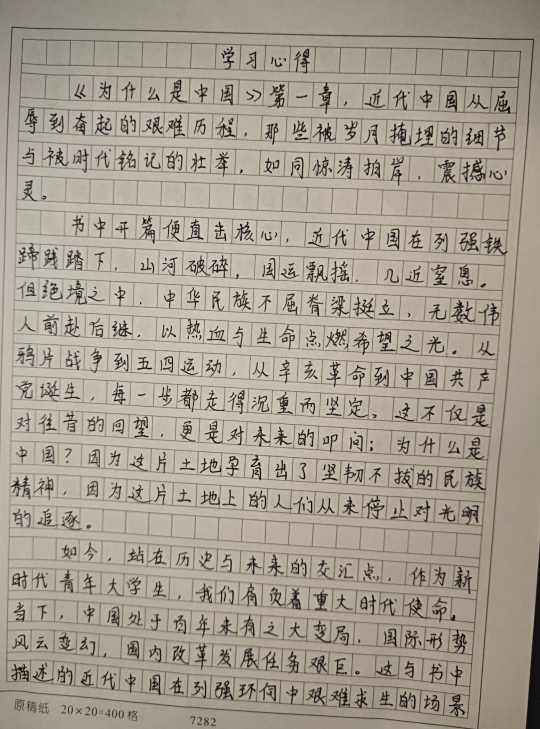 学习心得
《为什么是中国》第一章，近代中国从屈
辱到奋起的艰难历程，那些被岁月掩埋的细节
与被时代铭记的壮举，如同惊涛拍岸，震撼心
灵。
书中开篇便直击核心，近代中国在列强铁
蹄践踏下，山河破碎，国运飘摇，几近窒息。
但绝境之中，中华民族不屈脊梁挺立，无数伟
人前赴后继，以热血与生命点燃希望之光。从
鸦片战争到五四运动，从辛亥革命到中国共产
党诞生，每一步都走得沉重而坚定。这不仅是
对往昔的回望，更是对未来的叩问：为什么是
中国？因为这片土地孕育出了坚韧不拔的民族
精神，因为这片土地上的人们从未停止对光明
的追逐。
如今，站在历史与未来的交汇点，作为新
时代青年大学生，我们肩负着重大时代使命。
当下，中国处于百年未有之大变局，国际形势
风云变幻，国内改革发展任务艰巨。这与书中
描述的近代中国在列强环伺中艰难求生的场景
原稿纸 20×20=400格 7282